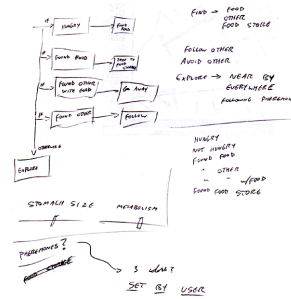 IF
HUNGRY
FIND FOOD
IF
FOUND FOOD
TAKE TO
IF
FOUND OTHER
WITH FOOD
GO AWAY
IF
FOUND OTHER
FOLLOW
OTHERWISE
EXPLORE
FIND → FOOD
OTHER
FOOD STORE
FOLLOW OTHER
AVOID OTHER
EXPLORE → NEAR BY
EVERYWHERE
FOLLOWING
HUNGRY
NOT HUNGRY
FOUND FOOD
" OTHER
" " W/FOOD
FOUND FOOD STORE
STOMACH SIZE
METABOLISM
PHEREMONES?
FOOD STORAGE
3
SET BY USER